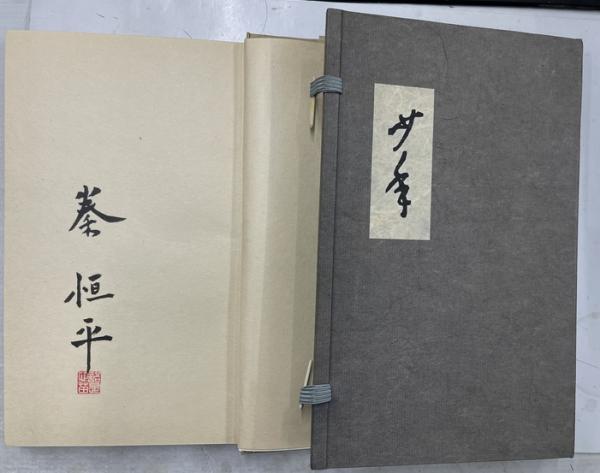 少年
秦恒平